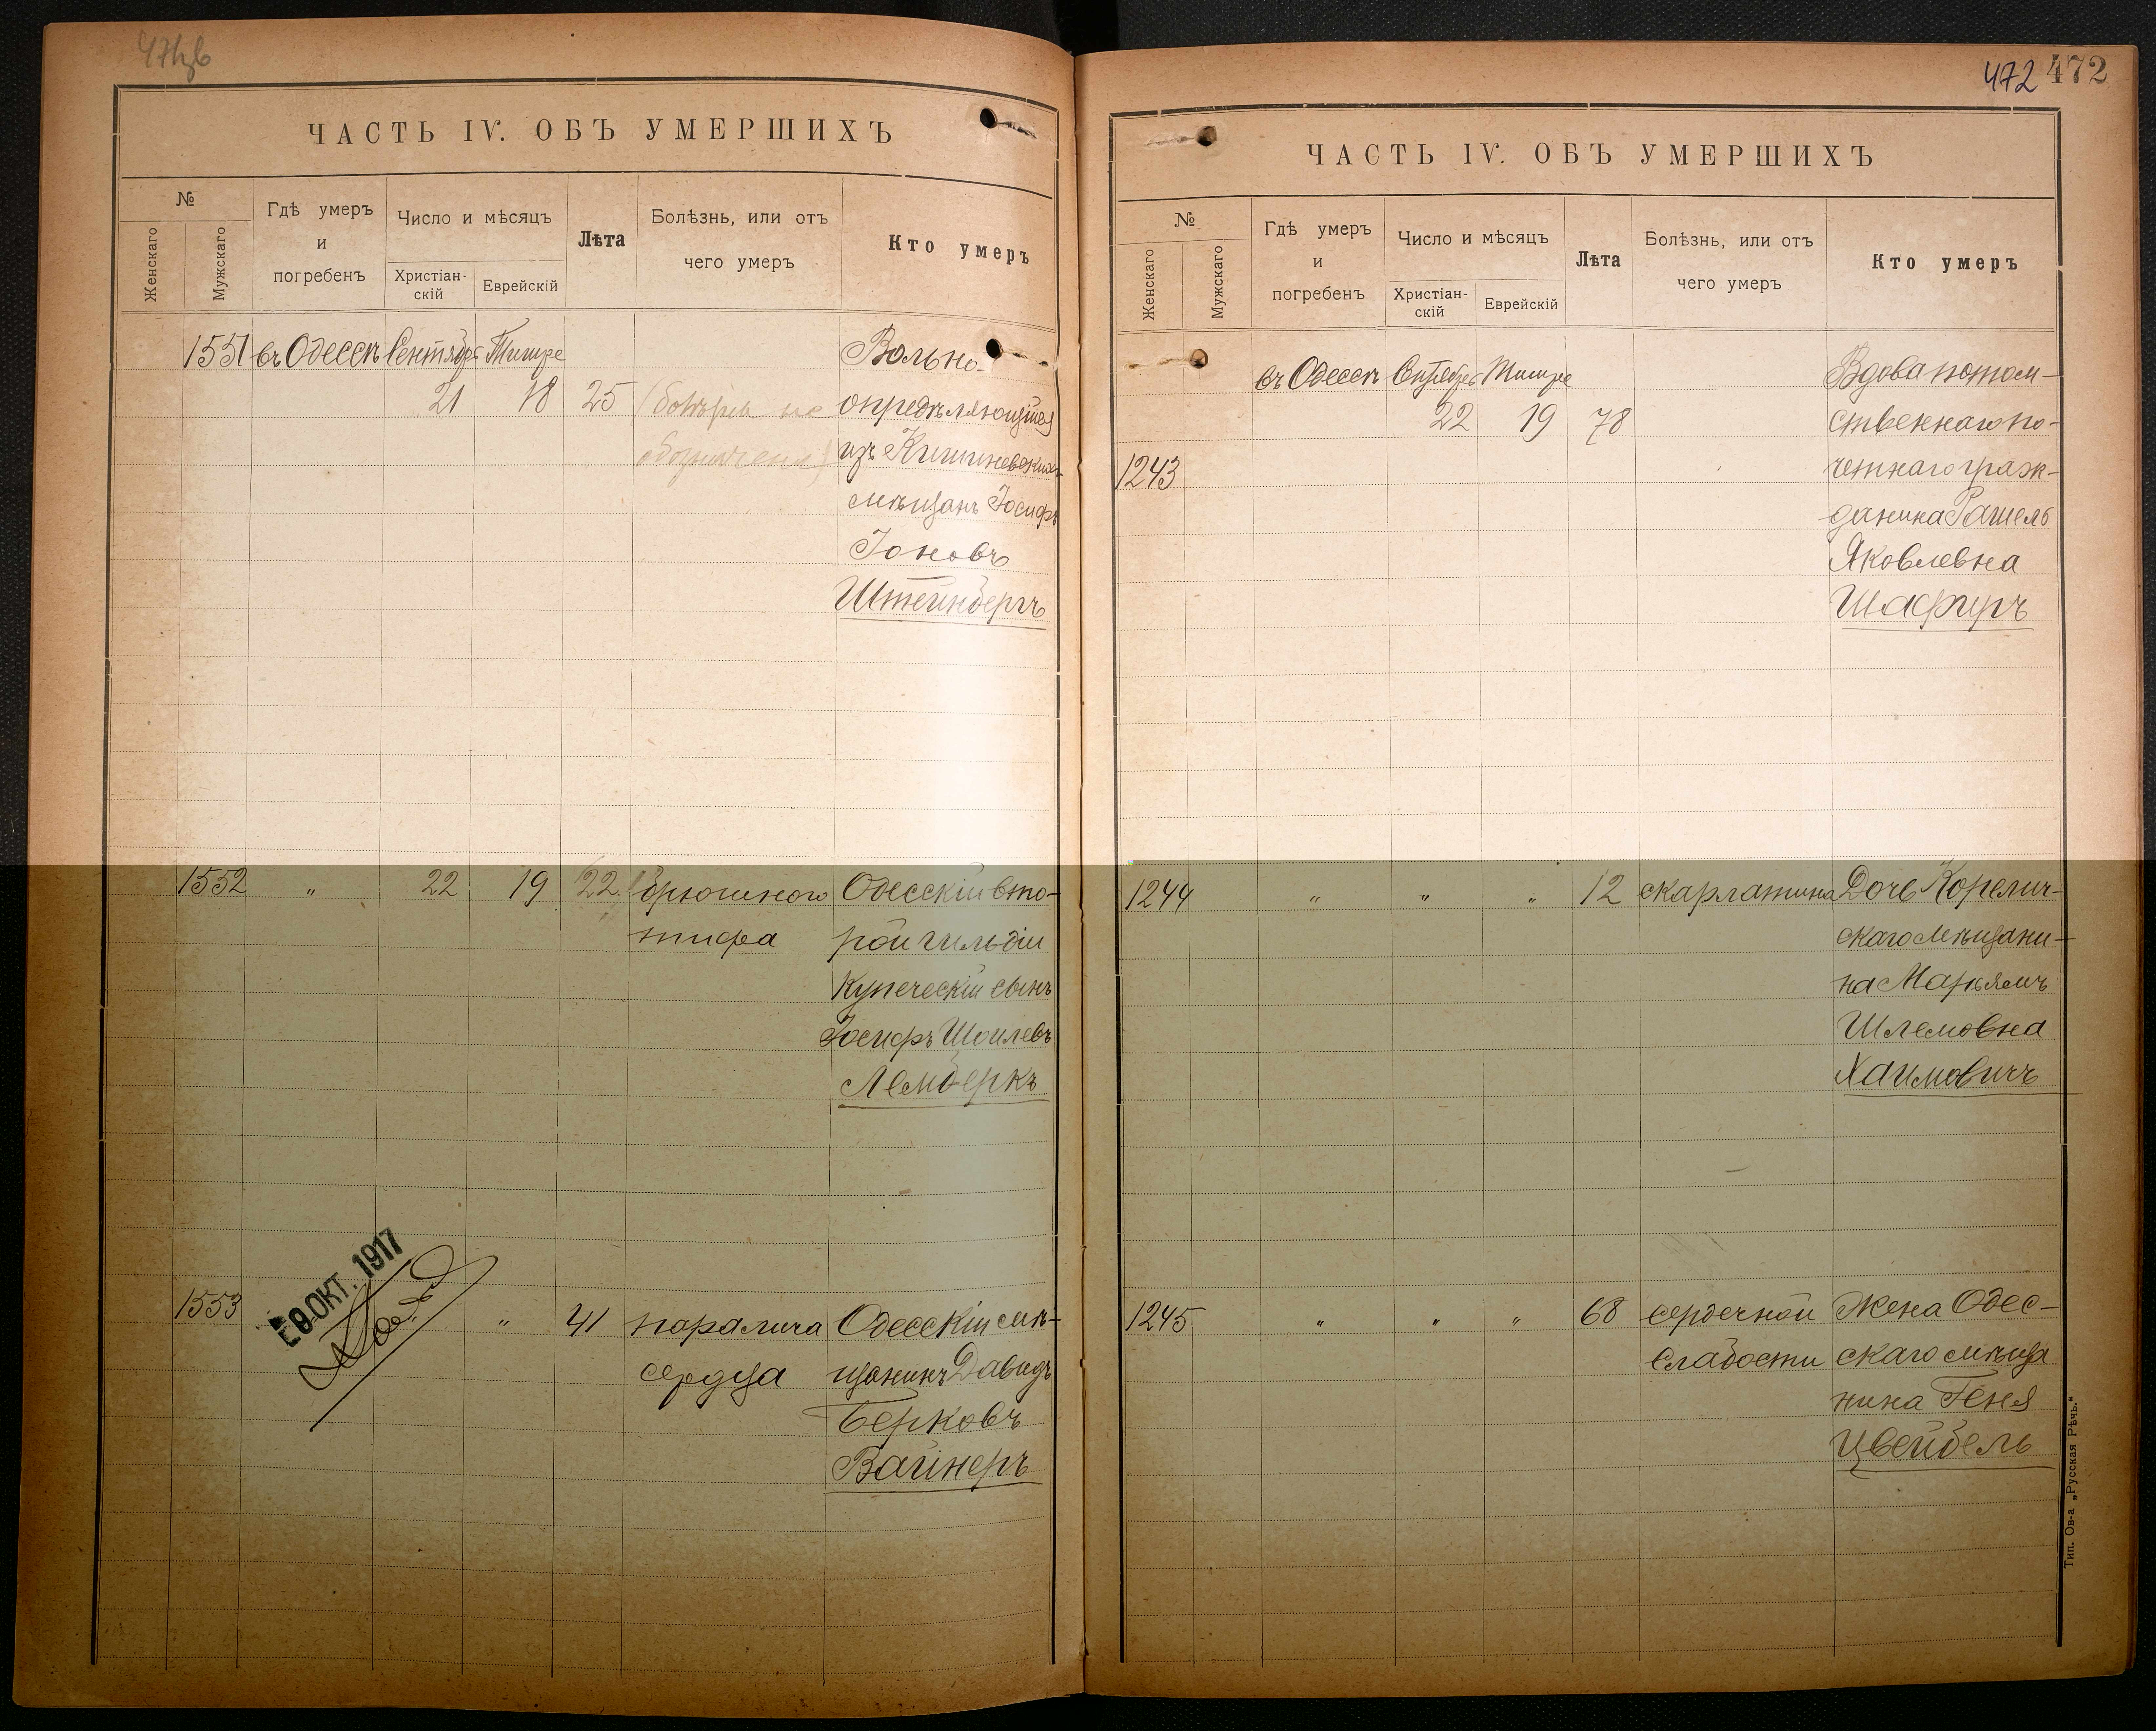 ЧАСТЬ IV. ОБЪ УМЕРШИХЪ
№
Женскаго
Мужскаго
Гдѣ умеръ
и
погребенъ
Число и мѣсяцъ
Христіан-
скій
Еврейскій
Лѣта
Болѣзнь, или отъ
чего умеръ
Кто умеръ
1551 въ Одессѣ Сентябрь Тишре Вольно-
21 18 25 не опредѣляющійся
изъ Кишиневскихъ
мѣщанъ Іосифъ
Іоновъ
Штейнбергъ
1552 " 22 19 22 брюшного Одесскій вто-
тифа рой гильдіи
купеческій сынъ
Іосифъ Шоилевъ
Лемберкъ
1553 " 41 паралича Одесскій мѣ-
сердца щанинъ Давидъ
Берковъ
Вайнеръ
ОКТ. 1917
472 472
ЧАСТЬ IV. ОБЪ УМЕРШИХЪ
№
Женскаго
Мужскаго
Гдѣ умеръ
и
погребенъ
Число и мѣсяцъ
Христіан-
скій
Еврейскій
Лѣта
Болѣзнь, или отъ
чего умеръ
Кто умеръ
въ Одессѣ Сентябрь Тишре Вдова потом-
22 19 78 ственнаго по-
1243 четнаго граж-
данина Рашель
Яковлевна
Шафиръ
1244 " " " 12 скарлатина Дочь Корелич-
скаго мѣщани-
на Марьямъ
Шлемовна
Хаимовичъ
1245 " " " 68 сердечной Жена Одес-
слабости скаго мѣща
нина Геня
Цвейбель
Тип. Ов-а „Русская Рѣчь.“